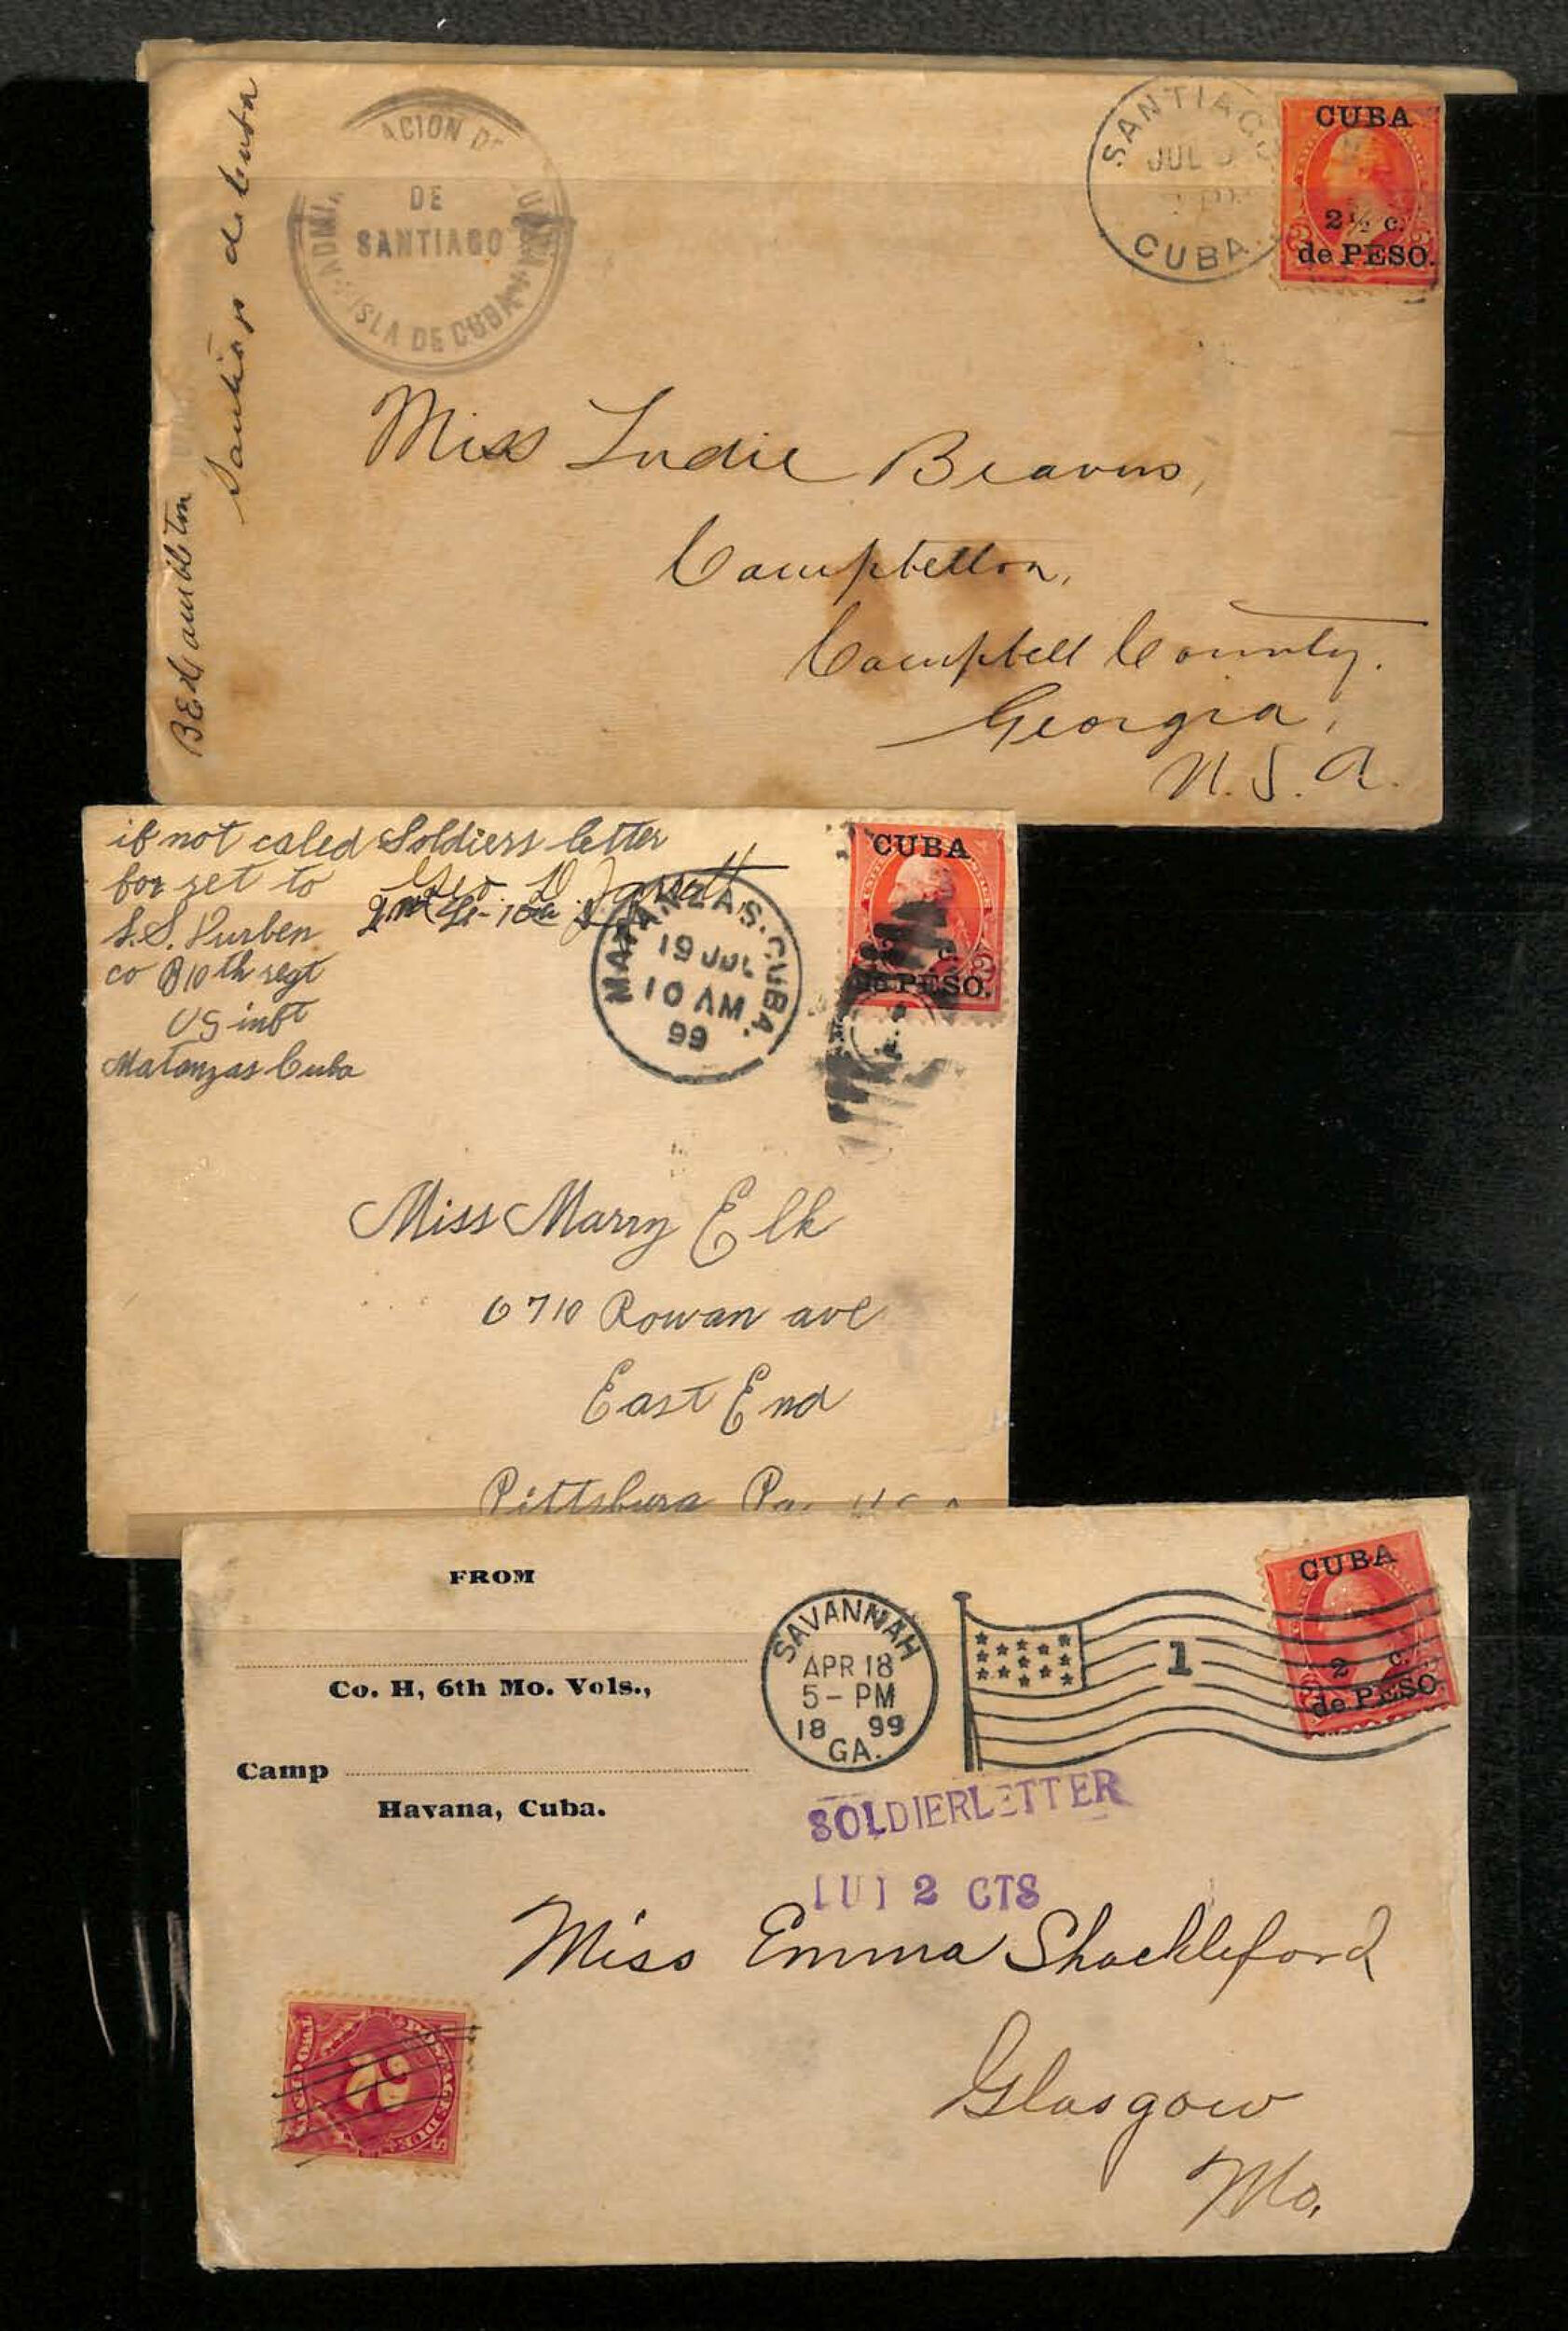 ACION DE
DE
SANTIAGO
ISLA DE CUBA
SANTIAGO
JUL
CUBA
CUBA
2½ c.
de PESO.
Santiago de Cuba
Miss Ludie Beavers,
Campbellton,
Campbell County.
Georgia,
U.S.A.
if not caled Soldiers letter
for ret to Geo. D. Jarrett
S.S. Purben
co B 10th regt
US inft
Matanzas Cuba
MATANZAS. CUBA.
19 JUL
10 AM
99
CUBA
c.
de PESO.
Miss Marry Elk
6710 Rowan ave
East End
Pittsburg Pa.
FROM
Co. H, 6th Mo. Vols.,
Camp
Havana, Cuba.
SAVANNAH
APR 18
5 - PM
18 99
GA.
1
CUBA
2 c.
de PESO
SOLDIERLETTER
[U] 2 CTS
Miss Emma Shackleford
Glasgow
Mo.
POSTAGE DUE
2